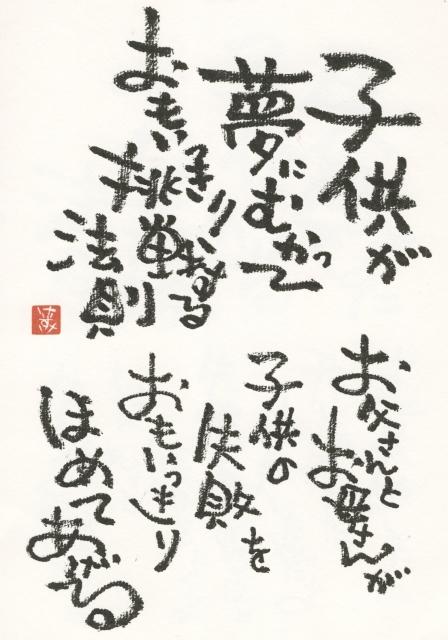 子供が
夢にむかって
おもいきり
挑戦する
法則
お父さんと
お母さんが
子供の
失敗を
おもいっきり
ほめて
あげる